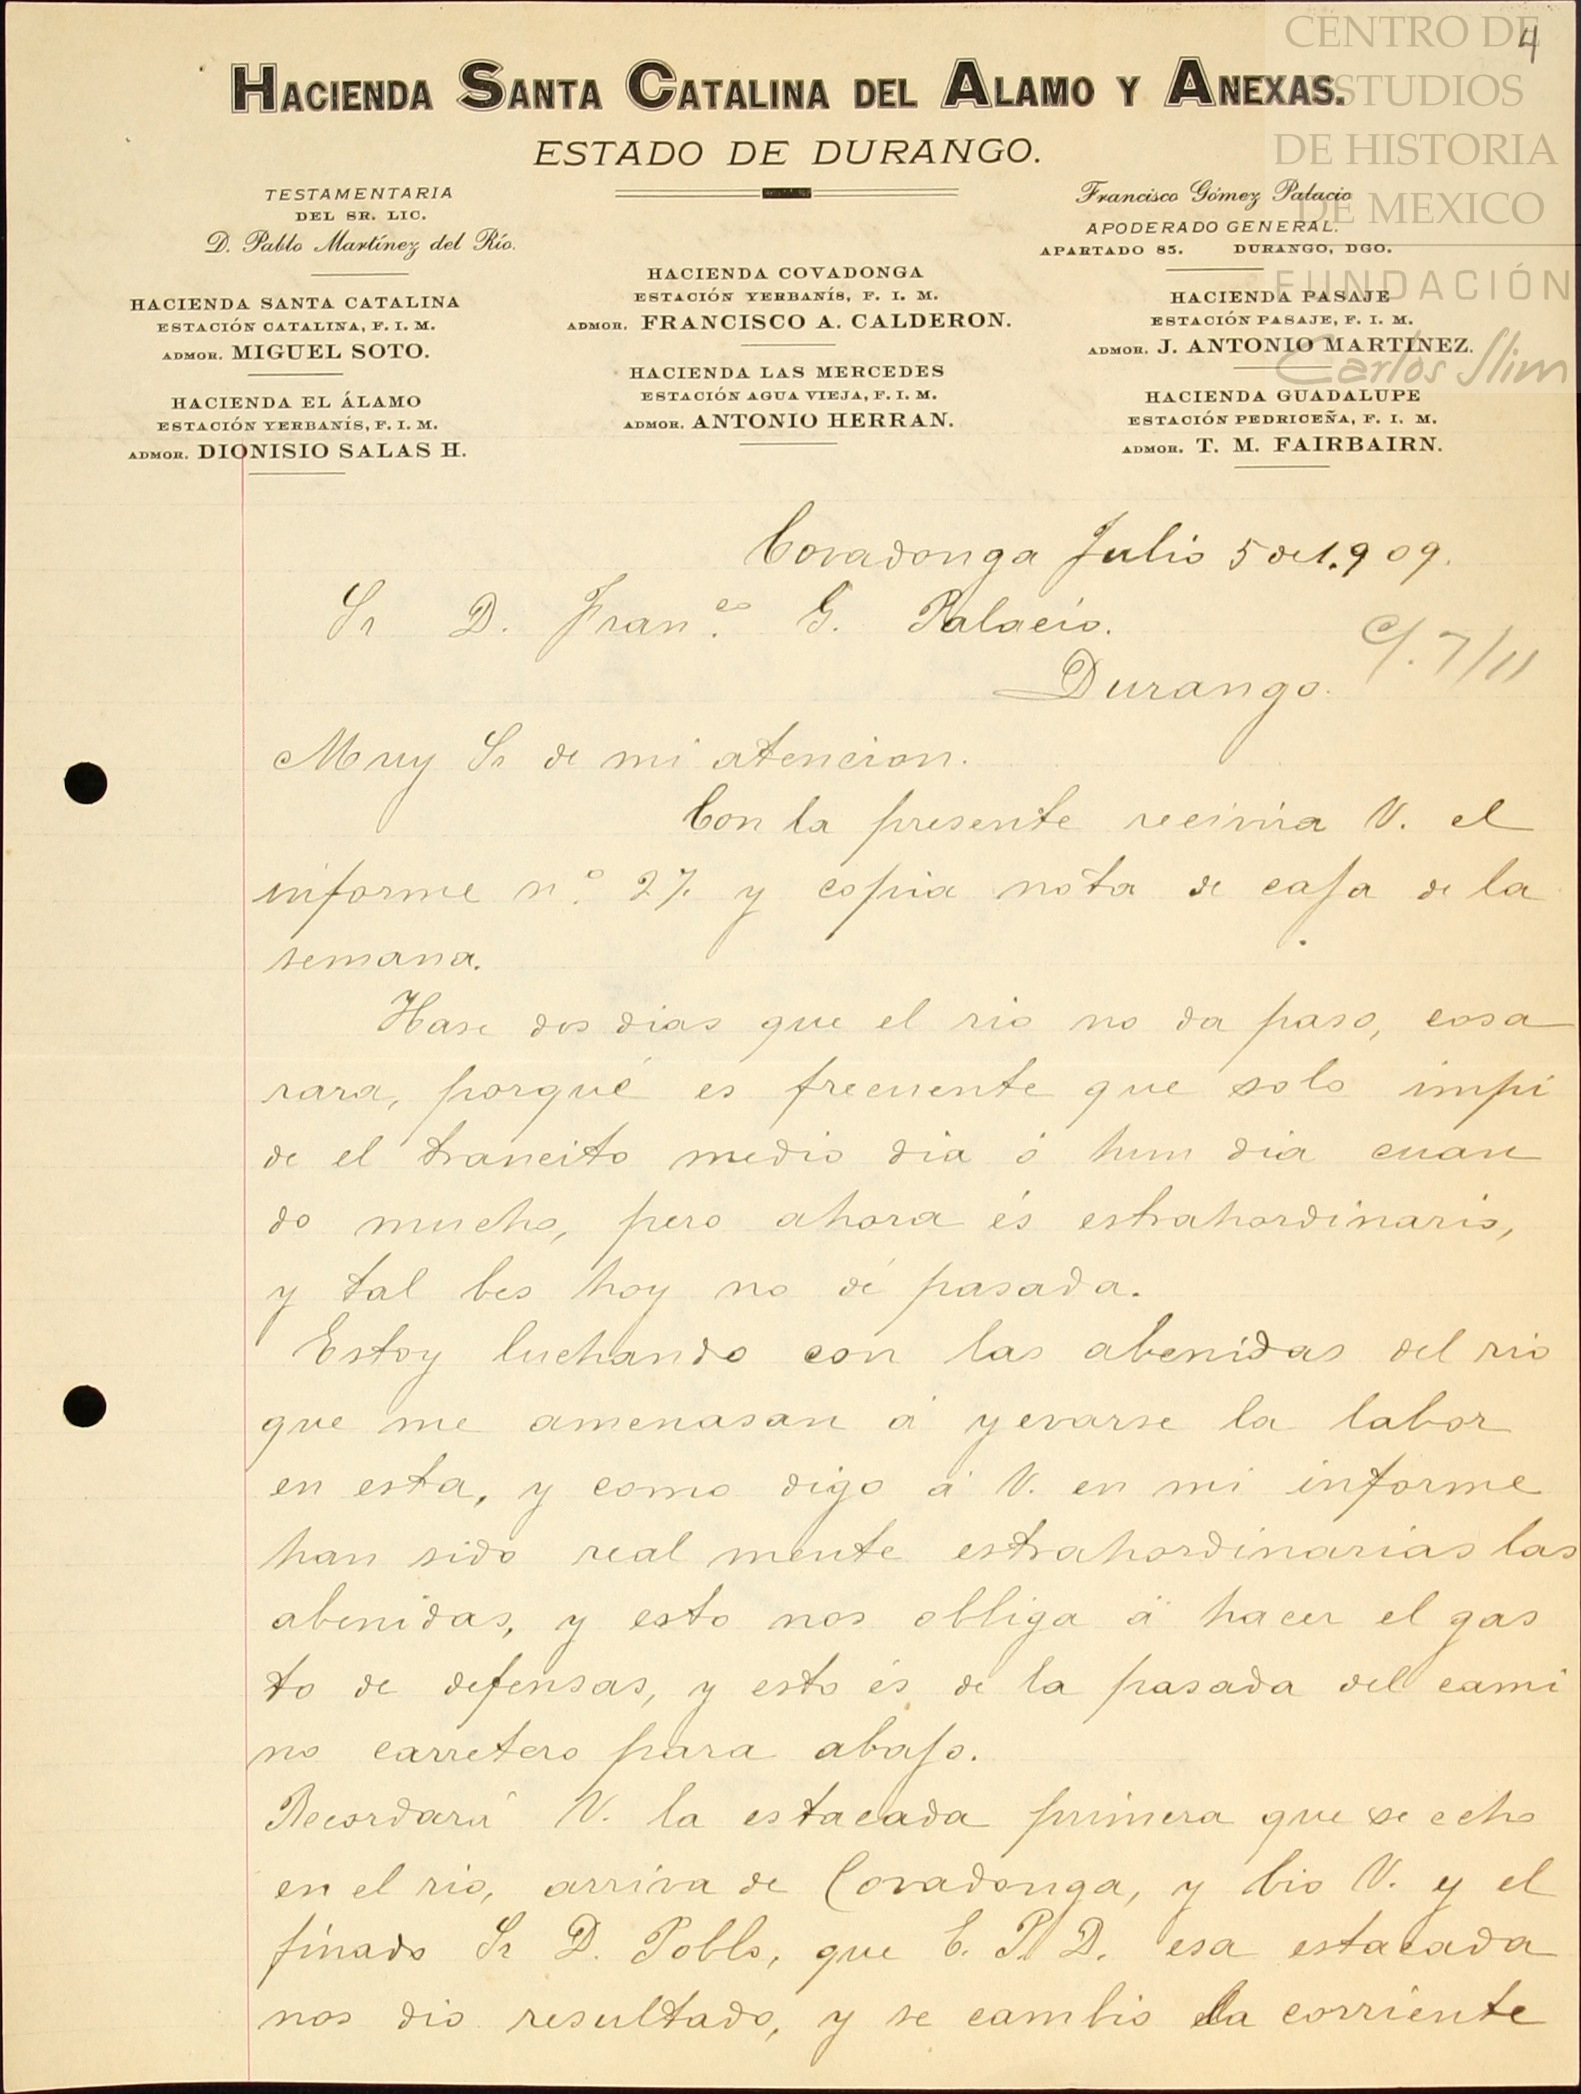 4
CENTRO DE
ESTUDIOS
DE HISTORIA
DE MEXICO
FUNDACIÓN
Carlos Slim
HACIENDA SANTA CATALINA DEL ALAMO Y ANEXAS.
ESTADO DE DURANGO.
TESTAMENTARIA
DEL SR. LIC.
D. Pablo Martínez del Río.
HACIENDA SANTA CATALINA
ESTACIÓN CATALINA, F. I. M.
ADMOR. MIGUEL SOTO.
HACIENDA EL ÁLAMO
ESTACIÓN YERBANÍS, F. I. M.
ADMOR. DIONISIO SALAS H.
HACIENDA COVADONGA
ESTACIÓN YERBANÍS, F. I. M.
ADMOR. FRANCISCO A. CALDERON.
HACIENDA LAS MERCEDES
ESTACIÓN AGUA VIEJA, F. I. M.
ADMOR. ANTONIO HERRAN.
Francisco Gómez Palacio
APODERADO GENERAL.
APARTADO 85. DURANGO, DGO.
HACIENDA PASAJE
ESTACIÓN PASAJE, F. I. M.
ADMOR. J. ANTONIO MARTINEZ.
HACIENDA GUADALUPE
ESTACIÓN PEDRICEÑA, F. I. M.
ADMOR. T. M. FAIRBAIRN.
Covadonga Julio 5 de 1.909.
Sr D. Fran.co G. Palacio.
C/. 7/11
Durango.
Muy Sr de mi atencion.
Con la presente recivira V. el
informe n.o 27. y copia nota de caja de la
semana.
Hase dos dias que el rio no da paso, cosa
rara, porqué es frecuente que solo impi
de el trancito medio dia ó hun dia cuan
do mucho, pero ahora és estrahordinario,
y tal bes hoy no dé pasada.
Estoy luchando con las abenidas del rio
que me amenasan á yevarse la labor
en esta, y como digo á V. en mi informe
han sido real mente estrahordinarias las
abenidas, y esto nos obliga á hacer el gas
to de defensas, y esto és de la pasada del cami
no carretero para abajo.
Recordará V. la estacada primera que se echo
en el rio, arriva de Covadonga, y bio V. y el
finado Sr D. Poblo, que E. P. D. esa estacada
nos dio resultado, y se cambio la corriente